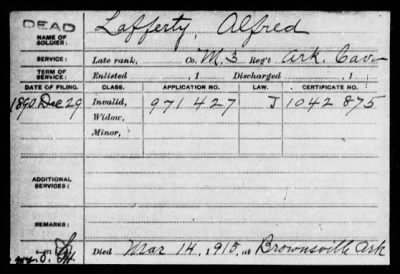 DEAD
NAME OF SOLDIER: Lafferty, Alfred
SERVICE: Late rank, Co. M, 3 Reg't Ark. Cav.
TERM OF SERVICE: Enlisted , 1 Discharged , 1
DATE OF FILING. CLASS. APPLICATION NO. LAW. CERTIFICATE NO.
1890 Dec 29 Invalid, 971427 J 1042875
Widow,
Minor,
ADDITIONAL SERVICES:
REMARKS:
Died Mar 14, 1915, at Brownsville Ark